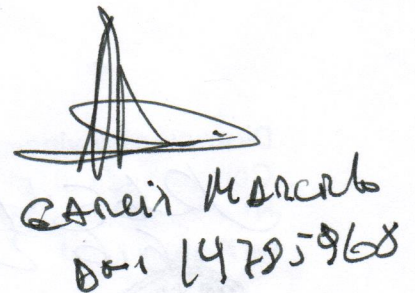 GARCIA MARCELO
DNI 14785968